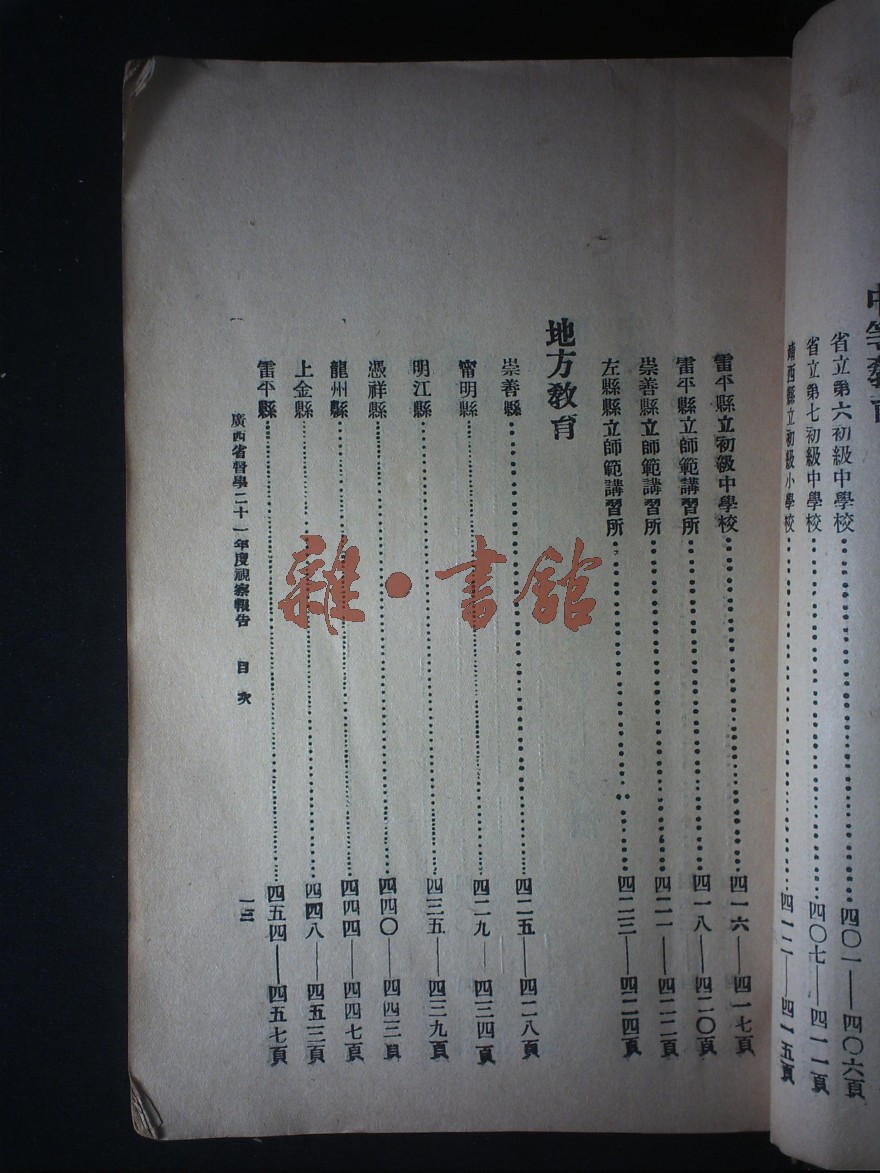 中等教育
省立第六初級中學校⋯⋯四〇一——四〇六頁
省立第七初級中學校⋯⋯四〇七——四一一頁
靖西縣立初級小學校⋯⋯四一二——四一五頁
雷平縣立初級中學校⋯⋯四一六——四一七頁
雷平縣立師範講習所⋯⋯四一八——四二〇頁
崇善縣立師範講習所⋯⋯四二一——四二二頁
左縣縣立師範講習所⋯⋯四二三——四二四頁
地方教育
崇善縣⋯⋯四二五——四二八頁
甯明縣⋯⋯四二九——四三四頁
明江縣⋯⋯四三五——四三九頁
憑祥縣⋯⋯四四〇——四四三頁
龍州縣⋯⋯四四四——四四七頁
上金縣⋯⋯四四八——四五三頁
雷平縣⋯⋯四五四——四五七頁
廣西省督學二十一年度視察報告 目次 一三
雜·書館